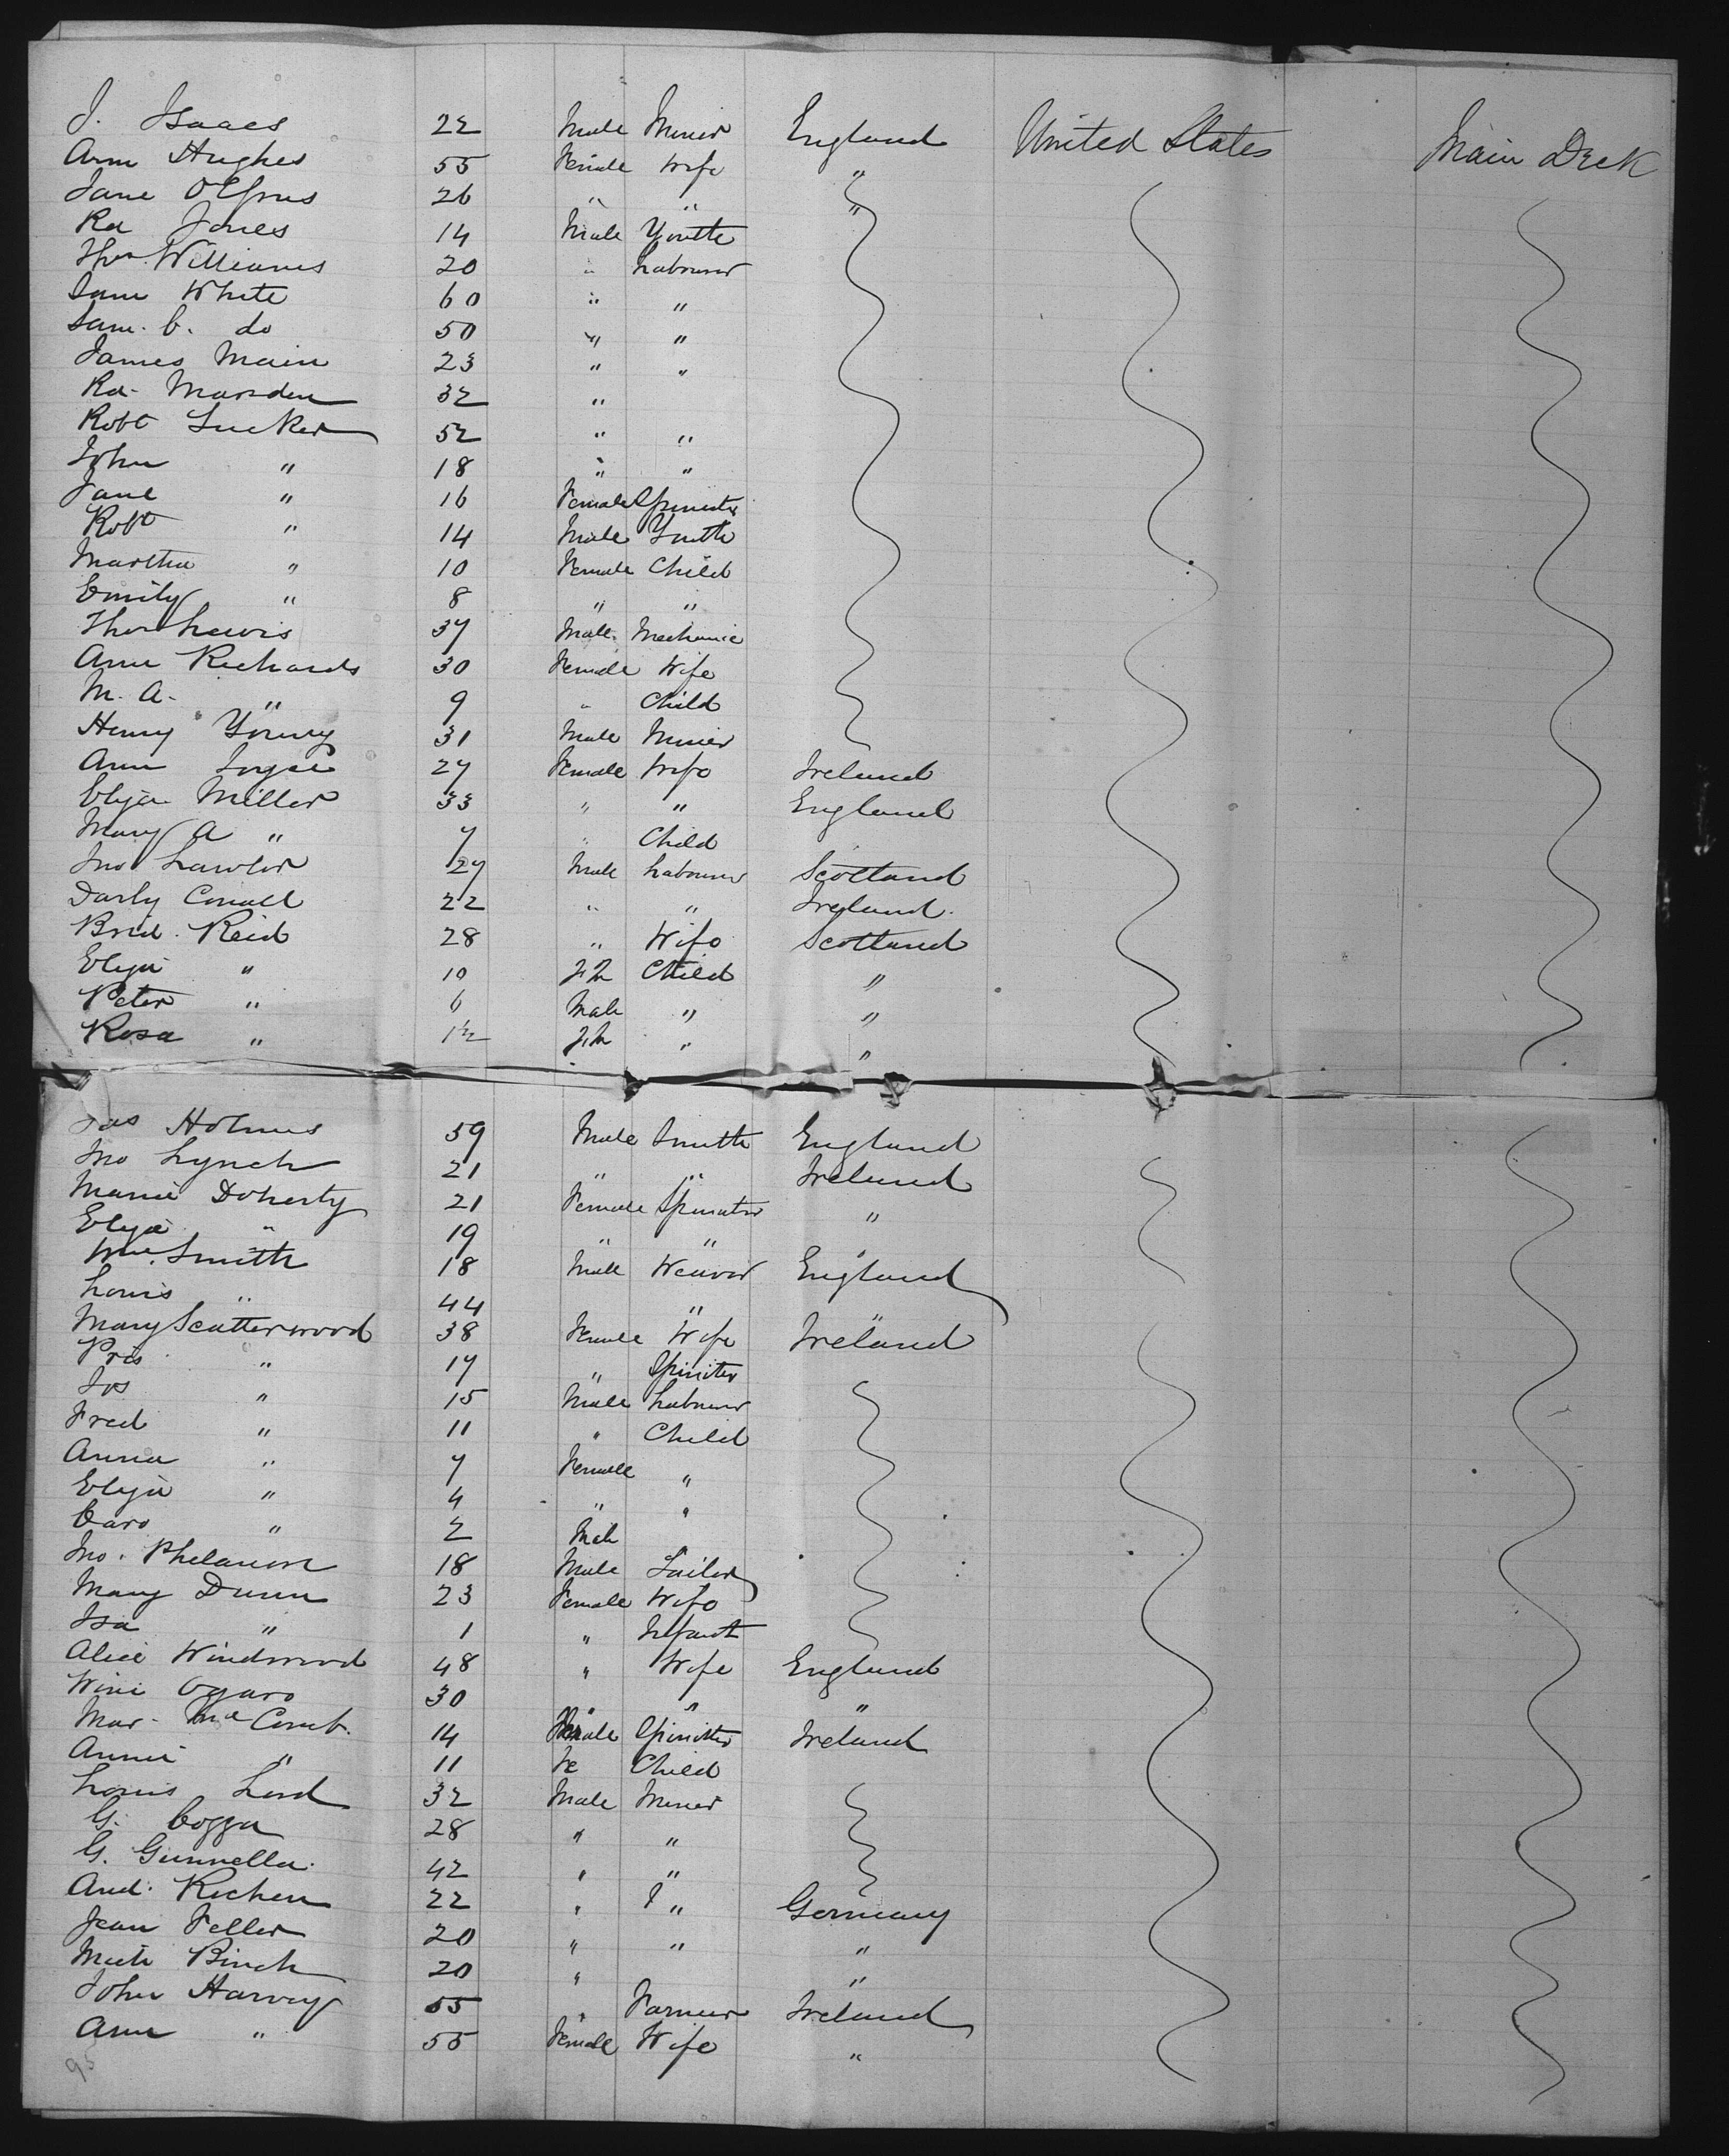 J. Isaacs 22 Male Miner England United States Main Deck
Ann Hughes 55 Female Wife "
Jane 26 " " "
Rd Jones 14 Male Youth
Thos Williams 20 " Labourer
Sam White 60 " "
Sam. C. do 50 " "
James Main 23 " "
Rd. Marsden 32 "
Robt Tucker 52 " "
John " 18 " "
Jane " 16 Female Spinster
Robt " 14 Male Youth
Martha " 10 Female Child
Emily " 8 " "
Thos Lewis 37 Male Mechanic
Ann Richards 30 Female Wife
M. A. " 9 " Child
Henry Young 31 Male Miner
Ann 27 Female Wife Ireland
Eliza Miller 33 " " England
Mary A " 7 " Child
Jno Lawlor 27 Male Labourer Scotland
Darby 22 " " Ireland.
Brid. Reid 28 " Wife Scotland
Eliza " 10 Child "
Peter " 6 Male " "
Rosa " " "
Jas Holmes 59 Male Smith England
Jno Lynch 21 " " Ireland
Maria Doherty 21 Female Spinster "
Eliza " 19 " "
Wm. Smith 18 Male Weaver England
Louis " 44 "
Mary Scatterwood 38 Female Wife Ireland
Pris " 17 " Spinster
Jos " 15 Male Labourer
Fred " 11 " Child
Anna " 7 Female "
Eliza " 4 " "
Caro " 2 Male
Jno. Phelanon 18 Male Tailor
Mary Dunn 23 Female Wife
Isa " 1 " Infant
Alice Windwood 48 " Wife England
Wini Ogaro 30 " " "
Mar. McComb. 14 Female Spinster Ireland
Annie " 11 Fe Child
Louis Lord 32 Male Miner
G. Cogga 28 " "
G. Gunnella. 42 " "
And. Richen 22 " " Germany
Jean Feller 20 " " "
Mich Binch 20 " "
John Harvey 55 " Farmer Ireland
Ann " 55 Female Wife "
95